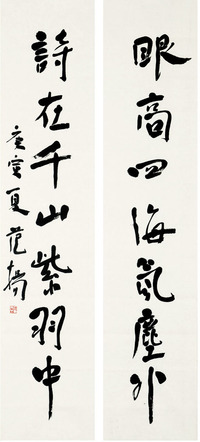 眼高四海氛塵外
詩在千山紫翠中
庚寅夏范揚